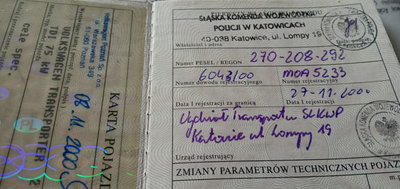 cele spec.
TDI 75 kW
VOLKSWAGEN TRANSPORTER
08.11.2000
KARTA POJAZ
ŚLĄSKA KOMENDA WOJEWÓDZKA
POLICJI W KATOWICACH
40-038 Katowice, ul. Lompy 19
Właściciel i adres
Numer PESEL / REGON 270-208-292
6043/00 MOA5233
Numer dowodu rejestracyjnego Numer rejestracyjny
27-11-2000
Data I rejestracji za granicą Data I rejestracji
Wydział Transportu ŚLKWP
Katowice ul Lompy 19
Urząd rejestrujący
ZMIANY PARAMETRÓW TECHNICZNYCH POJAZ
m.p.